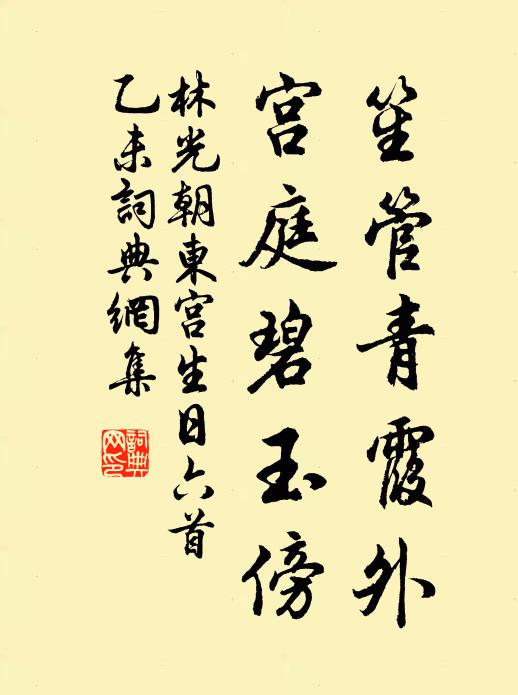 笙管青霞外
宫庭碧玉傍
林光朝東宫生日六首
乙未詞典網集
詞典网印